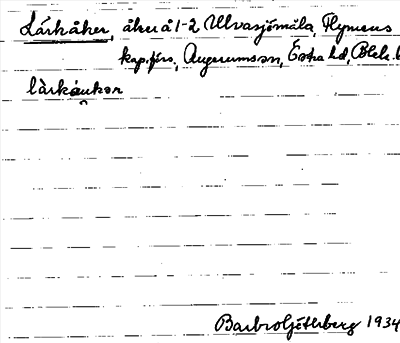 Lårkåker, åker å 1-2 Ulvasjömåla, Flymens
kap.förs., Augerums sn, Östra hd, Blek. l
lårkåukər
Barbro Götherberg 1934